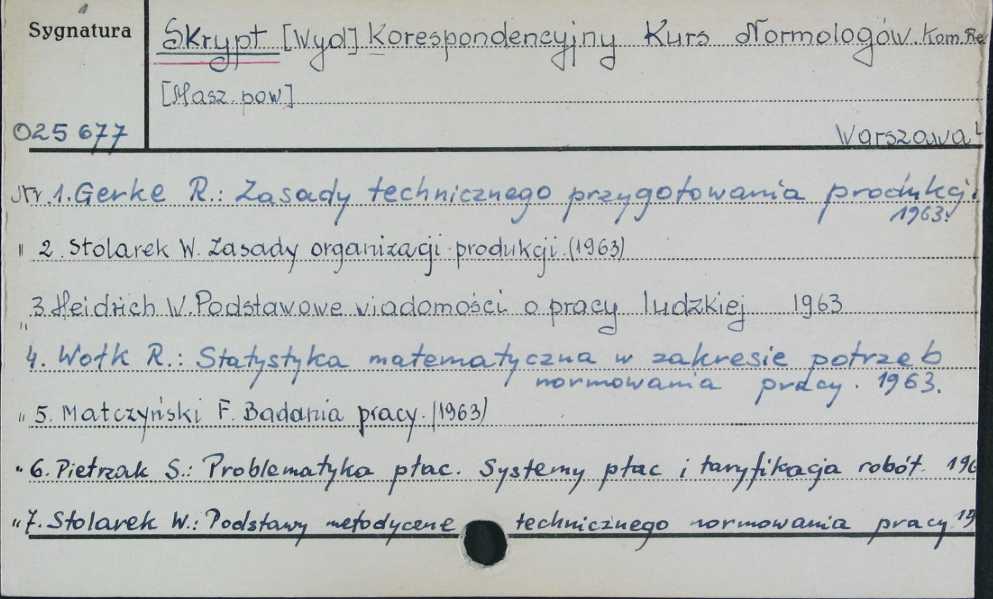 Sygnatura
Skrypt [Wyd] Korespondencyjny Kurs Normologów. Kom.
[Masz. pow]
025677
Warszawa
Nr 1. Gerke R.: Zasady technicznego przygotowania produkcj.
1963.
" 2. Stolarek W. Zasady organizacji produkcji. (1963)
3. Heidrich W. Podstawowe wiadomości o pracy ludzkiej 1963
"
4. Wołk R.: Statystyka matematyczna w zakresie potrzeb
normowania pracy. 1963.
" 5. Matczyński F. Badania pracy. (1963)
" 6. Pietrzak S.: Problematyka płac. Systemy płac i taryfikacja robót. 196
" 7. Stolarek W.: Podstawy metodyczne technicznego normowania pracy. 19